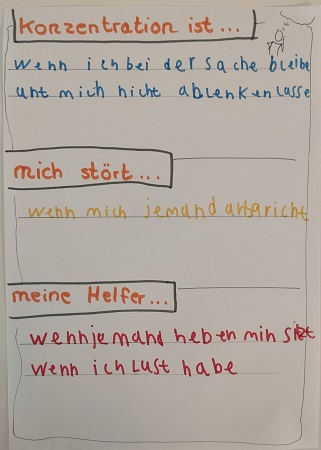 Konzentration ist...
wenn ich bei der sache bleibe
unt mich nicht ablenken lasse
mich stört...
wenn mich jemand ansricht
meine Helfer...
wenn jemand neben mir sitzt
wenn ich Lust habe